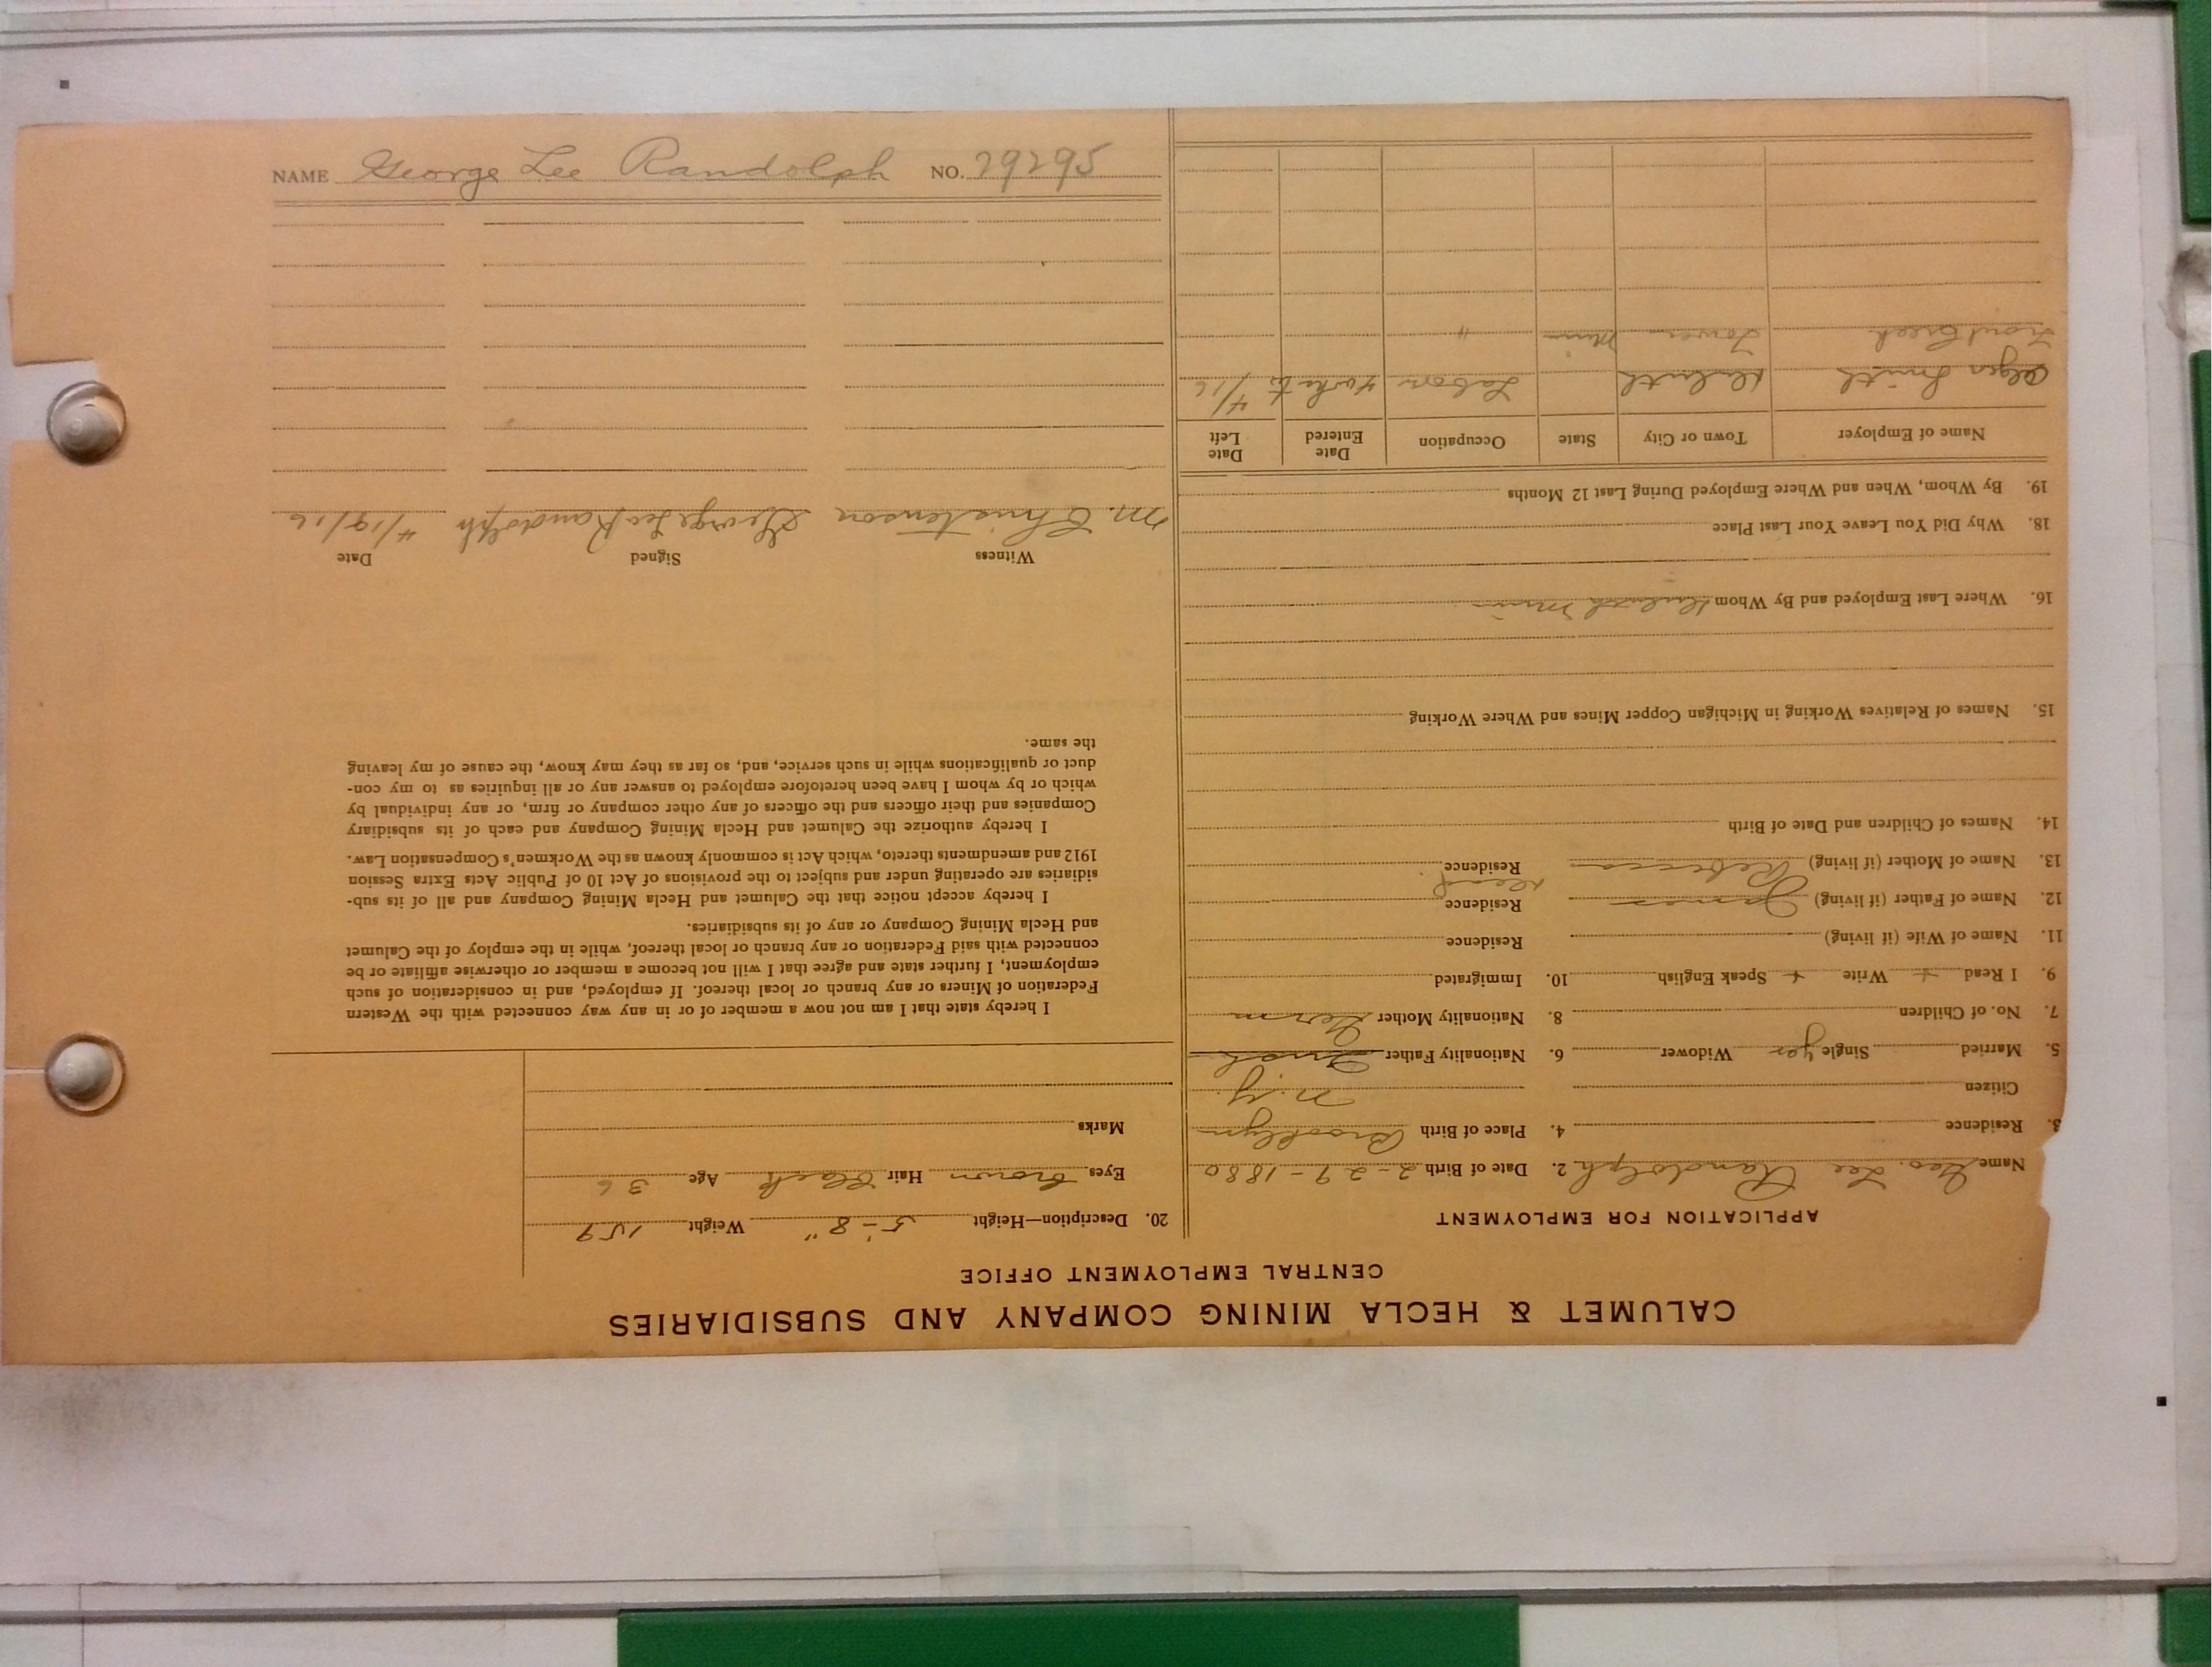 CALUMET & HECLA MINING COMPANY AND SUBSIDIARIES
CENTRAL EMPLOYMENT OFFICE
APPLICATION FOR EMPLOYMENT
Name Geo. Lee Randolph 2. Date of Birth 2-29-1880
3. Residence 4. Place of Birth Brooklyn
Citizen N.Y.
5. Married Single yes Widower 6. Nationality Father
7. No. of Children 8. Nationality Mother Germ
9. I Read + Write + Speak English 10. Immigrated
11. Name of Wife (if living) Residence
12. Name of Father (if living) James Residence Dead
13. Name of Mother (if living) Rebecca Residence
14. Names of Children and Date of Birth
15. Names of Relatives Working in Michigan Copper Mines and Where Working
16. Where Last Employed and By Whom Duluth Minn
18. Why Did You Leave Your Last Place
19. By Whom, When and Where Employed During Last 12 Months
Name of Employer Town or City State Occupation Date Entered Date Left
Alger Smith Duluth Labor 4/16
Trout Creek Tower Minn "
20. Description—Height 5'-8" Weight 159
Eyes brown Hair Black Age 36
Marks
I hereby state that I am not now a member of or in any way connected with the Western
Federation of Miners or any branch or local thereof. If employed, and in consideration of such
employment, I further state and agree that I will not become a member or otherwise affiliate or be
connected with said Federation or any branch or local thereof, while in the employ of the Calumet
and Hecla Mining Company or any of its subsidiaries.
I hereby accept notice that the Calumet and Hecla Mining Company and all of its sub-
sidiaries are operating under and subject to the provisions of Act 10 of Public Acts Extra Session
1912 and amendments thereto, which Act is commonly known as the Workmen's Compensation Law.
I hereby authorize the Calumet and Hecla Mining Company and each of its subsidiary
Companies and their officers and the officers of any other company or firm, or any individual by
which or by whom I have been heretofore employed to answer any or all inquiries as to my con-
duct or qualifications while in such service, and, so far as they may know, the cause of my leaving
the same.
Witness Signed Date
M. Christenson George Lee Randolph 4/19/16
NAME George Lee Randolph NO. 29295